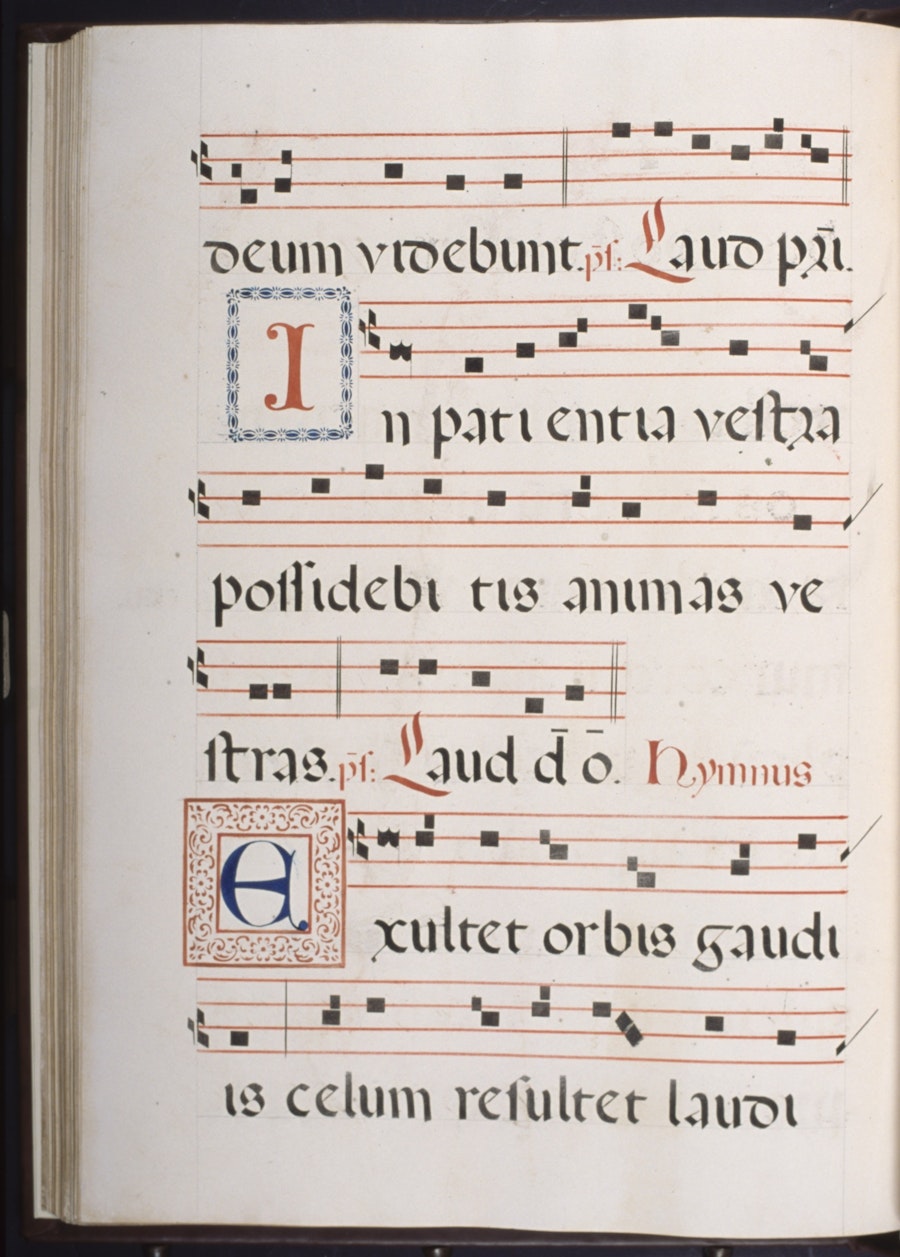 deum videbunt. p̄s: Laud pr̄i.
In pati entia vestra
possidebi tis animas ve
stras. p̄s: Laud d̄ ō. Hymnus
Exultet orbis gaudi
is celum resultet laudi